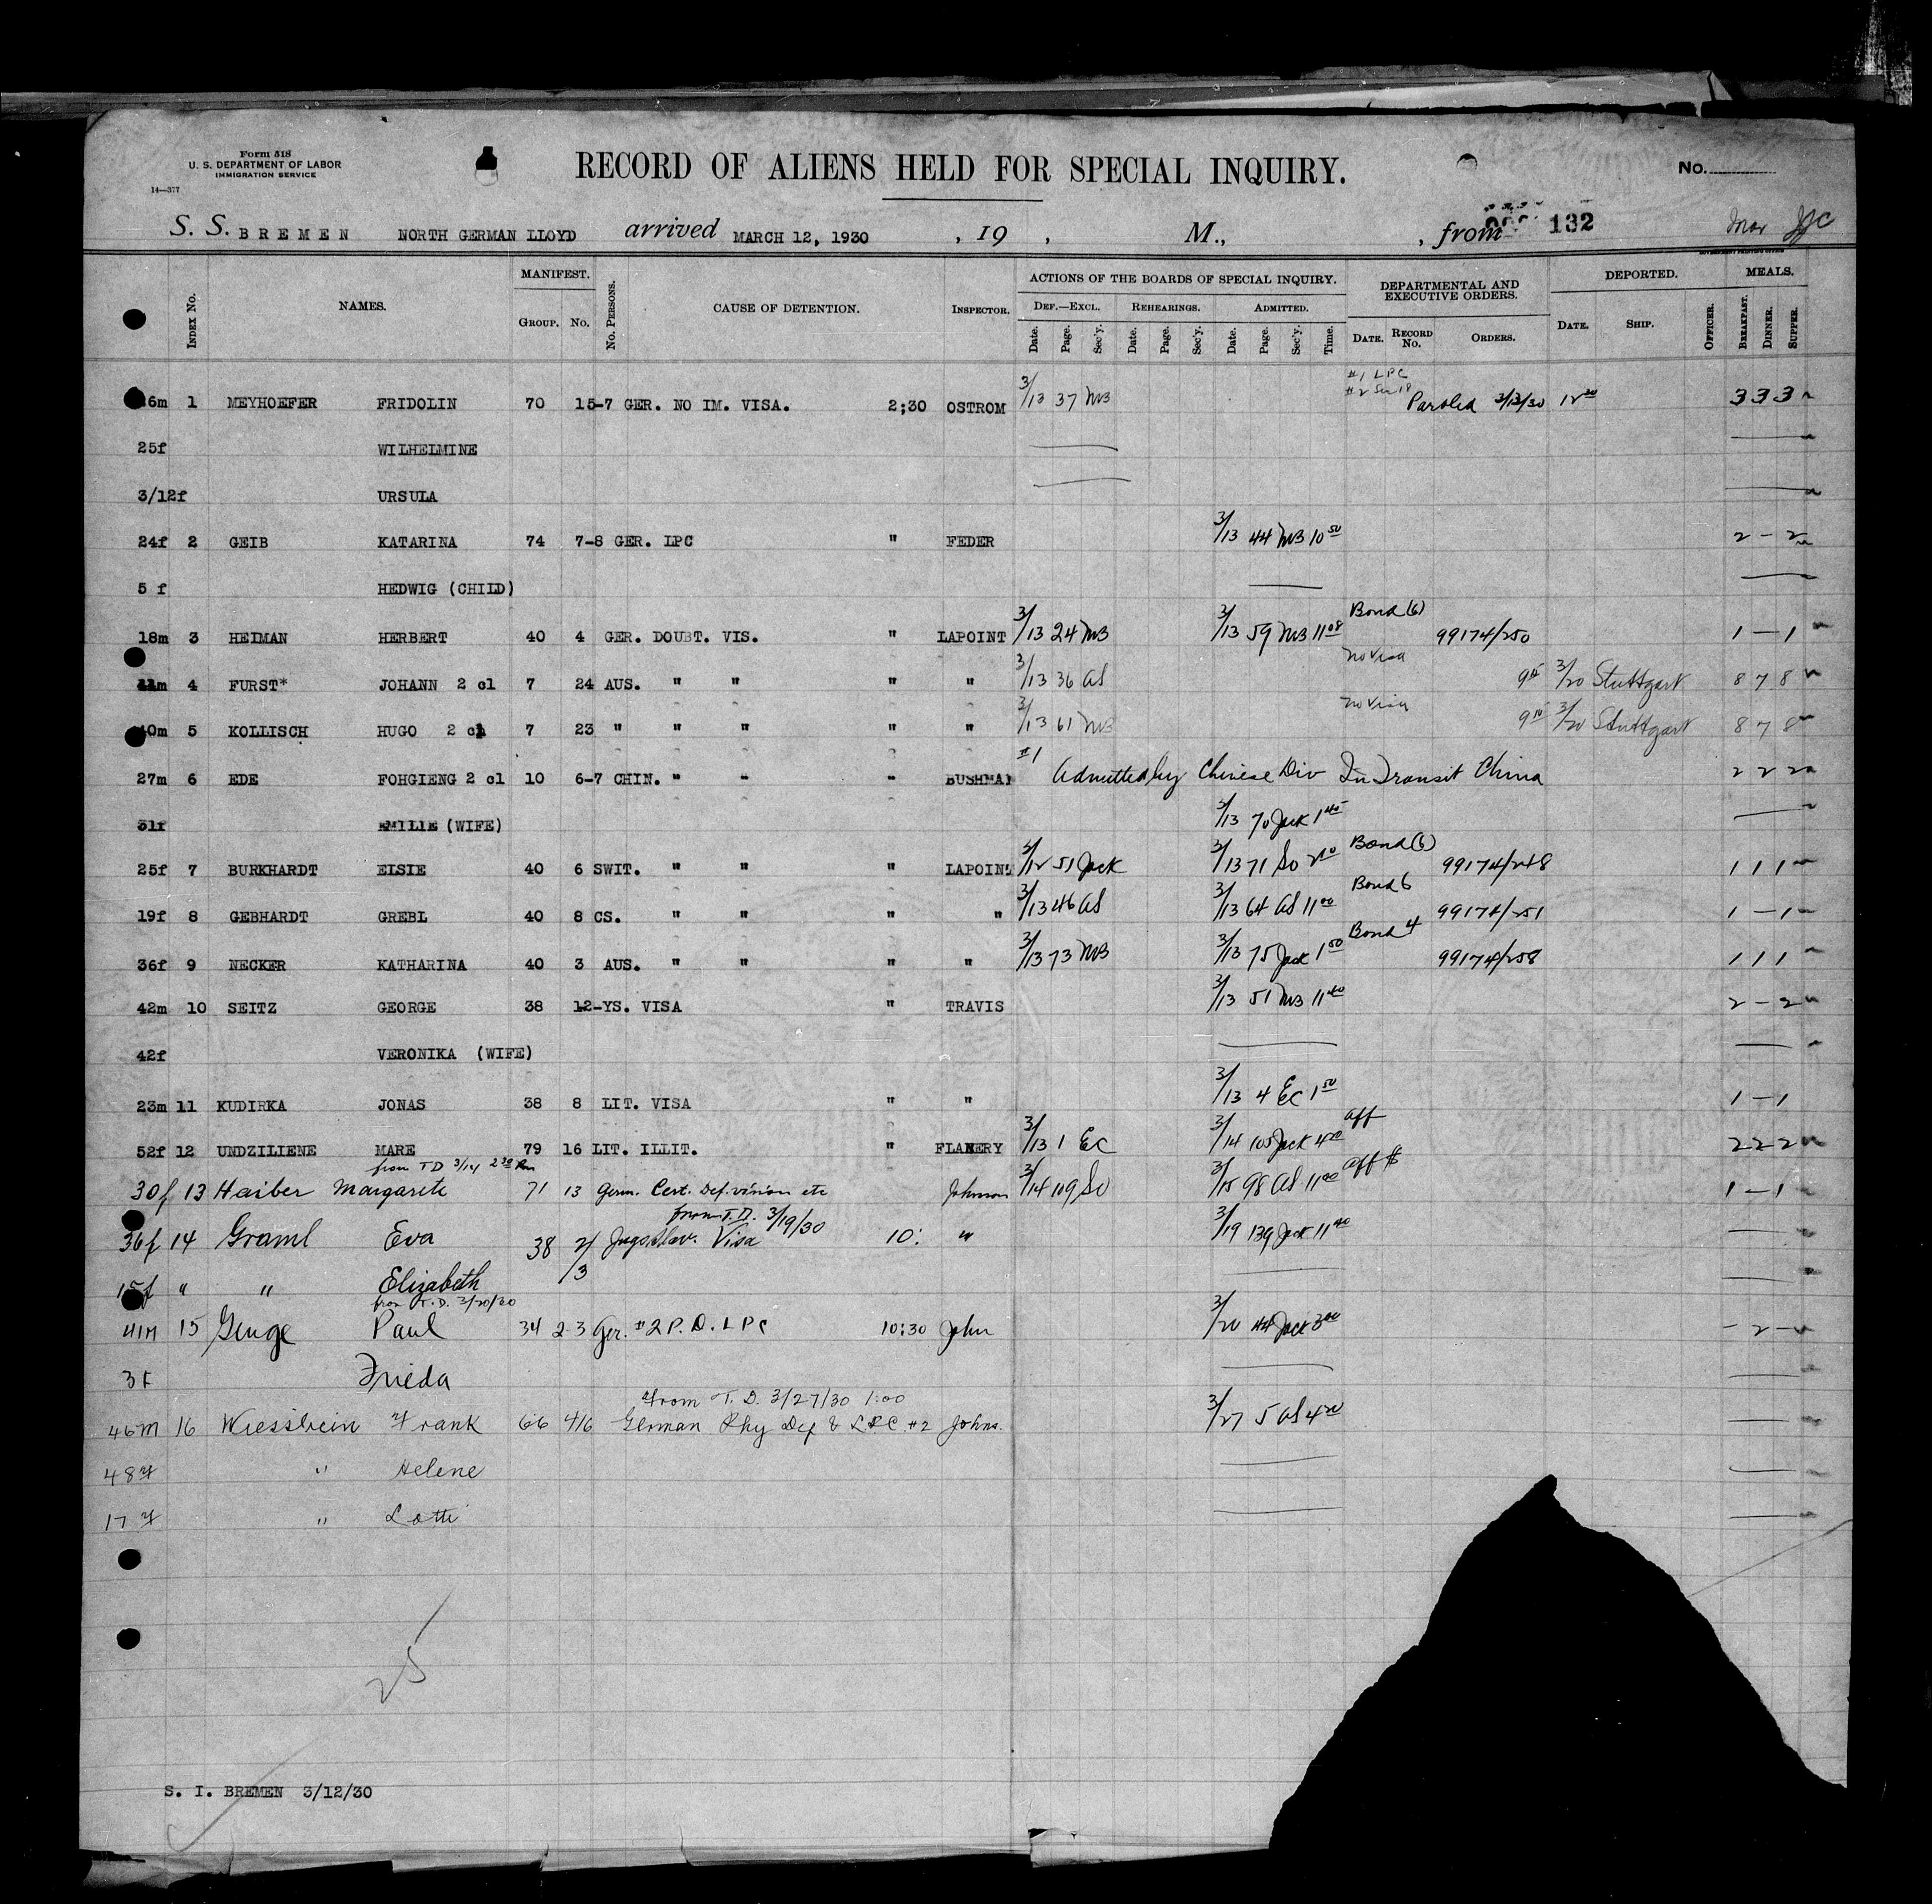 Form 518
U. S. DEPARTMENT OF LABOR
IMMIGRATION SERVICE
14—377
RECORD OF ALIENS HELD FOR SPECIAL INQUIRY.
No.
S. S. BREMEN NORTH GERMAN LLOYD arrived MARCH 12, 1930 , 19 , M., , from 132
MANIFEST. ACTIONS OF THE BOARDS OF SPECIAL INQUIRY. DEPARTMENTAL AND EXECUTIVE ORDERS. DEPORTED. MEALS.
Index No. NAMES. GROUP. No. No. PERSONS. CAUSE OF DETENTION. INSPECTOR. DEF.—EXCL. REHEARINGS. ADMITTED.
Date. Page. Sec'y. Date. Page. Sec'y. Date. Page. Sec'y. Time. DATE. RECORD No. ORDERS. DATE. SHIP. OFFICER. BREAKFAST. DINNER. SUPPER.
#1 LPC
6m 1 MEYHOEFER FRIDOLIN 70 15-7 GER. NO IM. VISA. 2;30 OSTROM 3/13 37 MB Paroled 3/13/30 3 3 3
25f WILHELMINE
3/12f URSULA
24f 2 GEIB KATARINA 74 7-8 GER. LPC " FEDER 3/13 44 MB 10 50 2 - 2
5 f HEDWIG (CHILD)
18m 3 HEIMAN HERBERT 40 4 GER. DOUBT. VIS. " LAPOINT 3/13 24 MB 3/13 59 MB 11 08 Bond (6) 99174/250 1 - 1
4 FURST* JOHANN 2 cl 7 24 AUS. " " " " 3/13 36 AS no visa 3/20 Stuttgart 8 7 8
40m 5 KOLLISCH HUGO 2 cl 7 23 " " " " " 3/13 61 MB no visa 3/20 Stuttgart 8 7 8
27m 6 EDE FOHGIENG 2 cl 10 6-7 CHIN. " " " BUSHMAN #1 Admitted by Chinese Div In Transit China 2 2 2
31f EMILIE (WIFE) 3/13 70 Jack 1 45
25f 7 BURKHARDT ELSIE 40 6 SWIT. " " " LAPOINT 3/12 51 Jack 3/13 71 So 2 10 Bond (6) 99174/248 1 1 1
19f 8 GEBHARDT GREBL 40 8 CS. " " " " 3/13 46 AS 3/13 64 AS 11 00 Bond 6 99174/251 1 - 1
36f 9 NECKER KATHARINA 40 3 AUS. " " " " 3/13 73 MB 3/13 75 Jack 1 50 Bond 4 99174/258 1 1 1
42m 10 SEITZ GEORGE 38 12-YS. VISA " TRAVIS 3/13 51 MB 11 40 2 - 2
42f VERONIKA (WIFE)
23m 11 KUDIRKA JONAS 38 8 LIT. VISA " " 3/13 4 EC 1 50 1 - 1
52f 12 UNDZILIENE MARE 79 16 LIT. ILLIT. " FLANERY 3/13 1 EC 3/14 105 Jack 4 00 aff 2 2 2
from T D 3/14 2 30 Pm
30f 13 Haiber Margarete 71 13 Germ. Cert. Def. vision etc Johnson 3/14 109 So 3/15 98 AS 11 00 aff $ 1 - 1
from T.D. 3/19/30
36f 14 Graml Eva 38 2/ Jugoslav. Visa 10: " 3/19 139 Jack 11 40
15f " " Elizabeth /3
from T.D. 3/20/30
41M 15 Genge Paul 34 2-3 Ger. #2 P. D. LPC 10:30 John 3/20 44 Jack 3 00 - 2 -
3f Frieda
from T. D. 3/27/30 1:00
46M 16 Wiessbein Frank 66 4/6 German Phy Def & LPC #2 Johns. 3/27 5 AS 4 20
48f " Helene
17f " Lotti
25
S. I. BREMEN 3/12/30